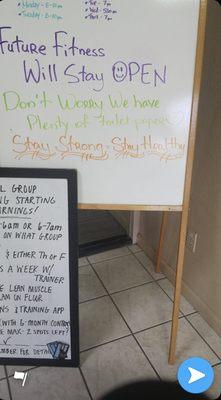 Monday - 8-10am
Tuesday - 8-10pm
Tue - 7am
Wed - 530am
Thur - 7am
Future Fitness
Will Stay OPEN
Don't Worry We have
Plenty of Toilet paper
Stay Strong - Stay Healthy
L GROUP
NG STARTING
RNINGS!
-6AM OR 6-7AM
ON WHAT GROUP
& EITHER TH OR F
S A WEEK W/
TRAINER
LEAN MUSCLE
AM ON FLUR
NS & TRAINING APP
(WITH 6-MONTH CONTRACT
E MAX - 2 SPOTS LEFT?
MBER FOR DETAILS